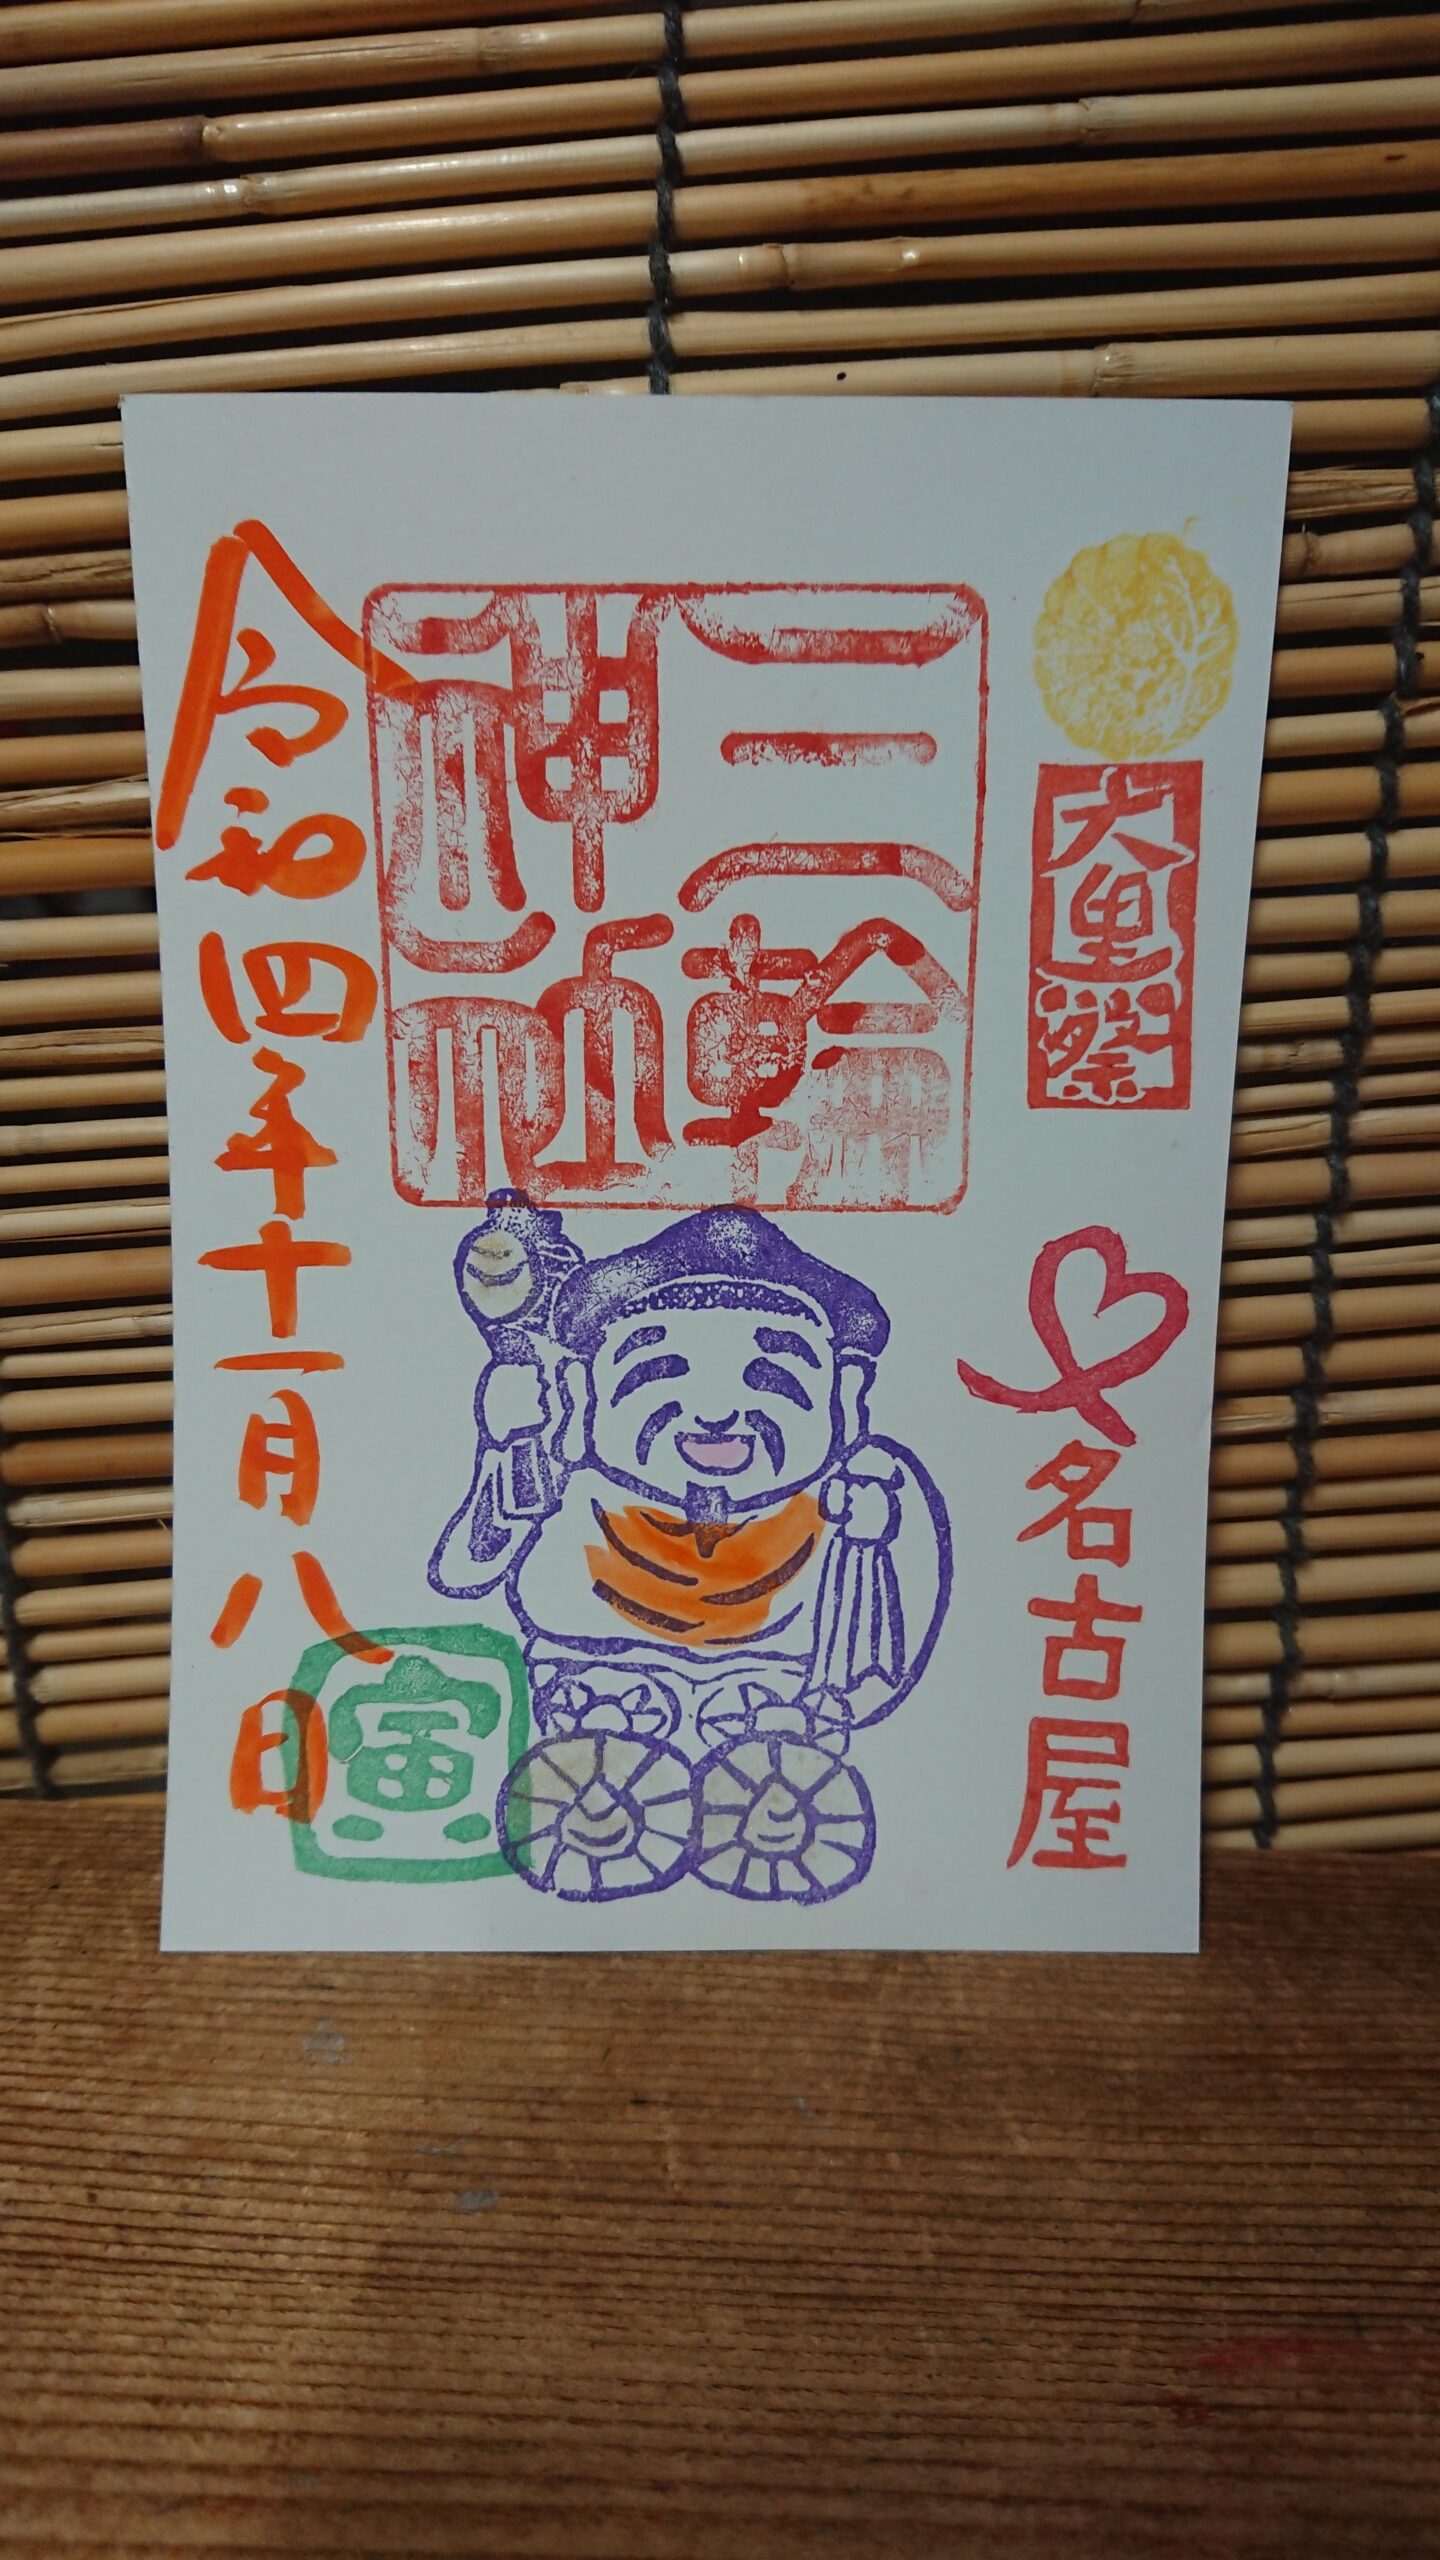 大黒祭
名古屋
三輪
神社
令和四年十一月八日
寅